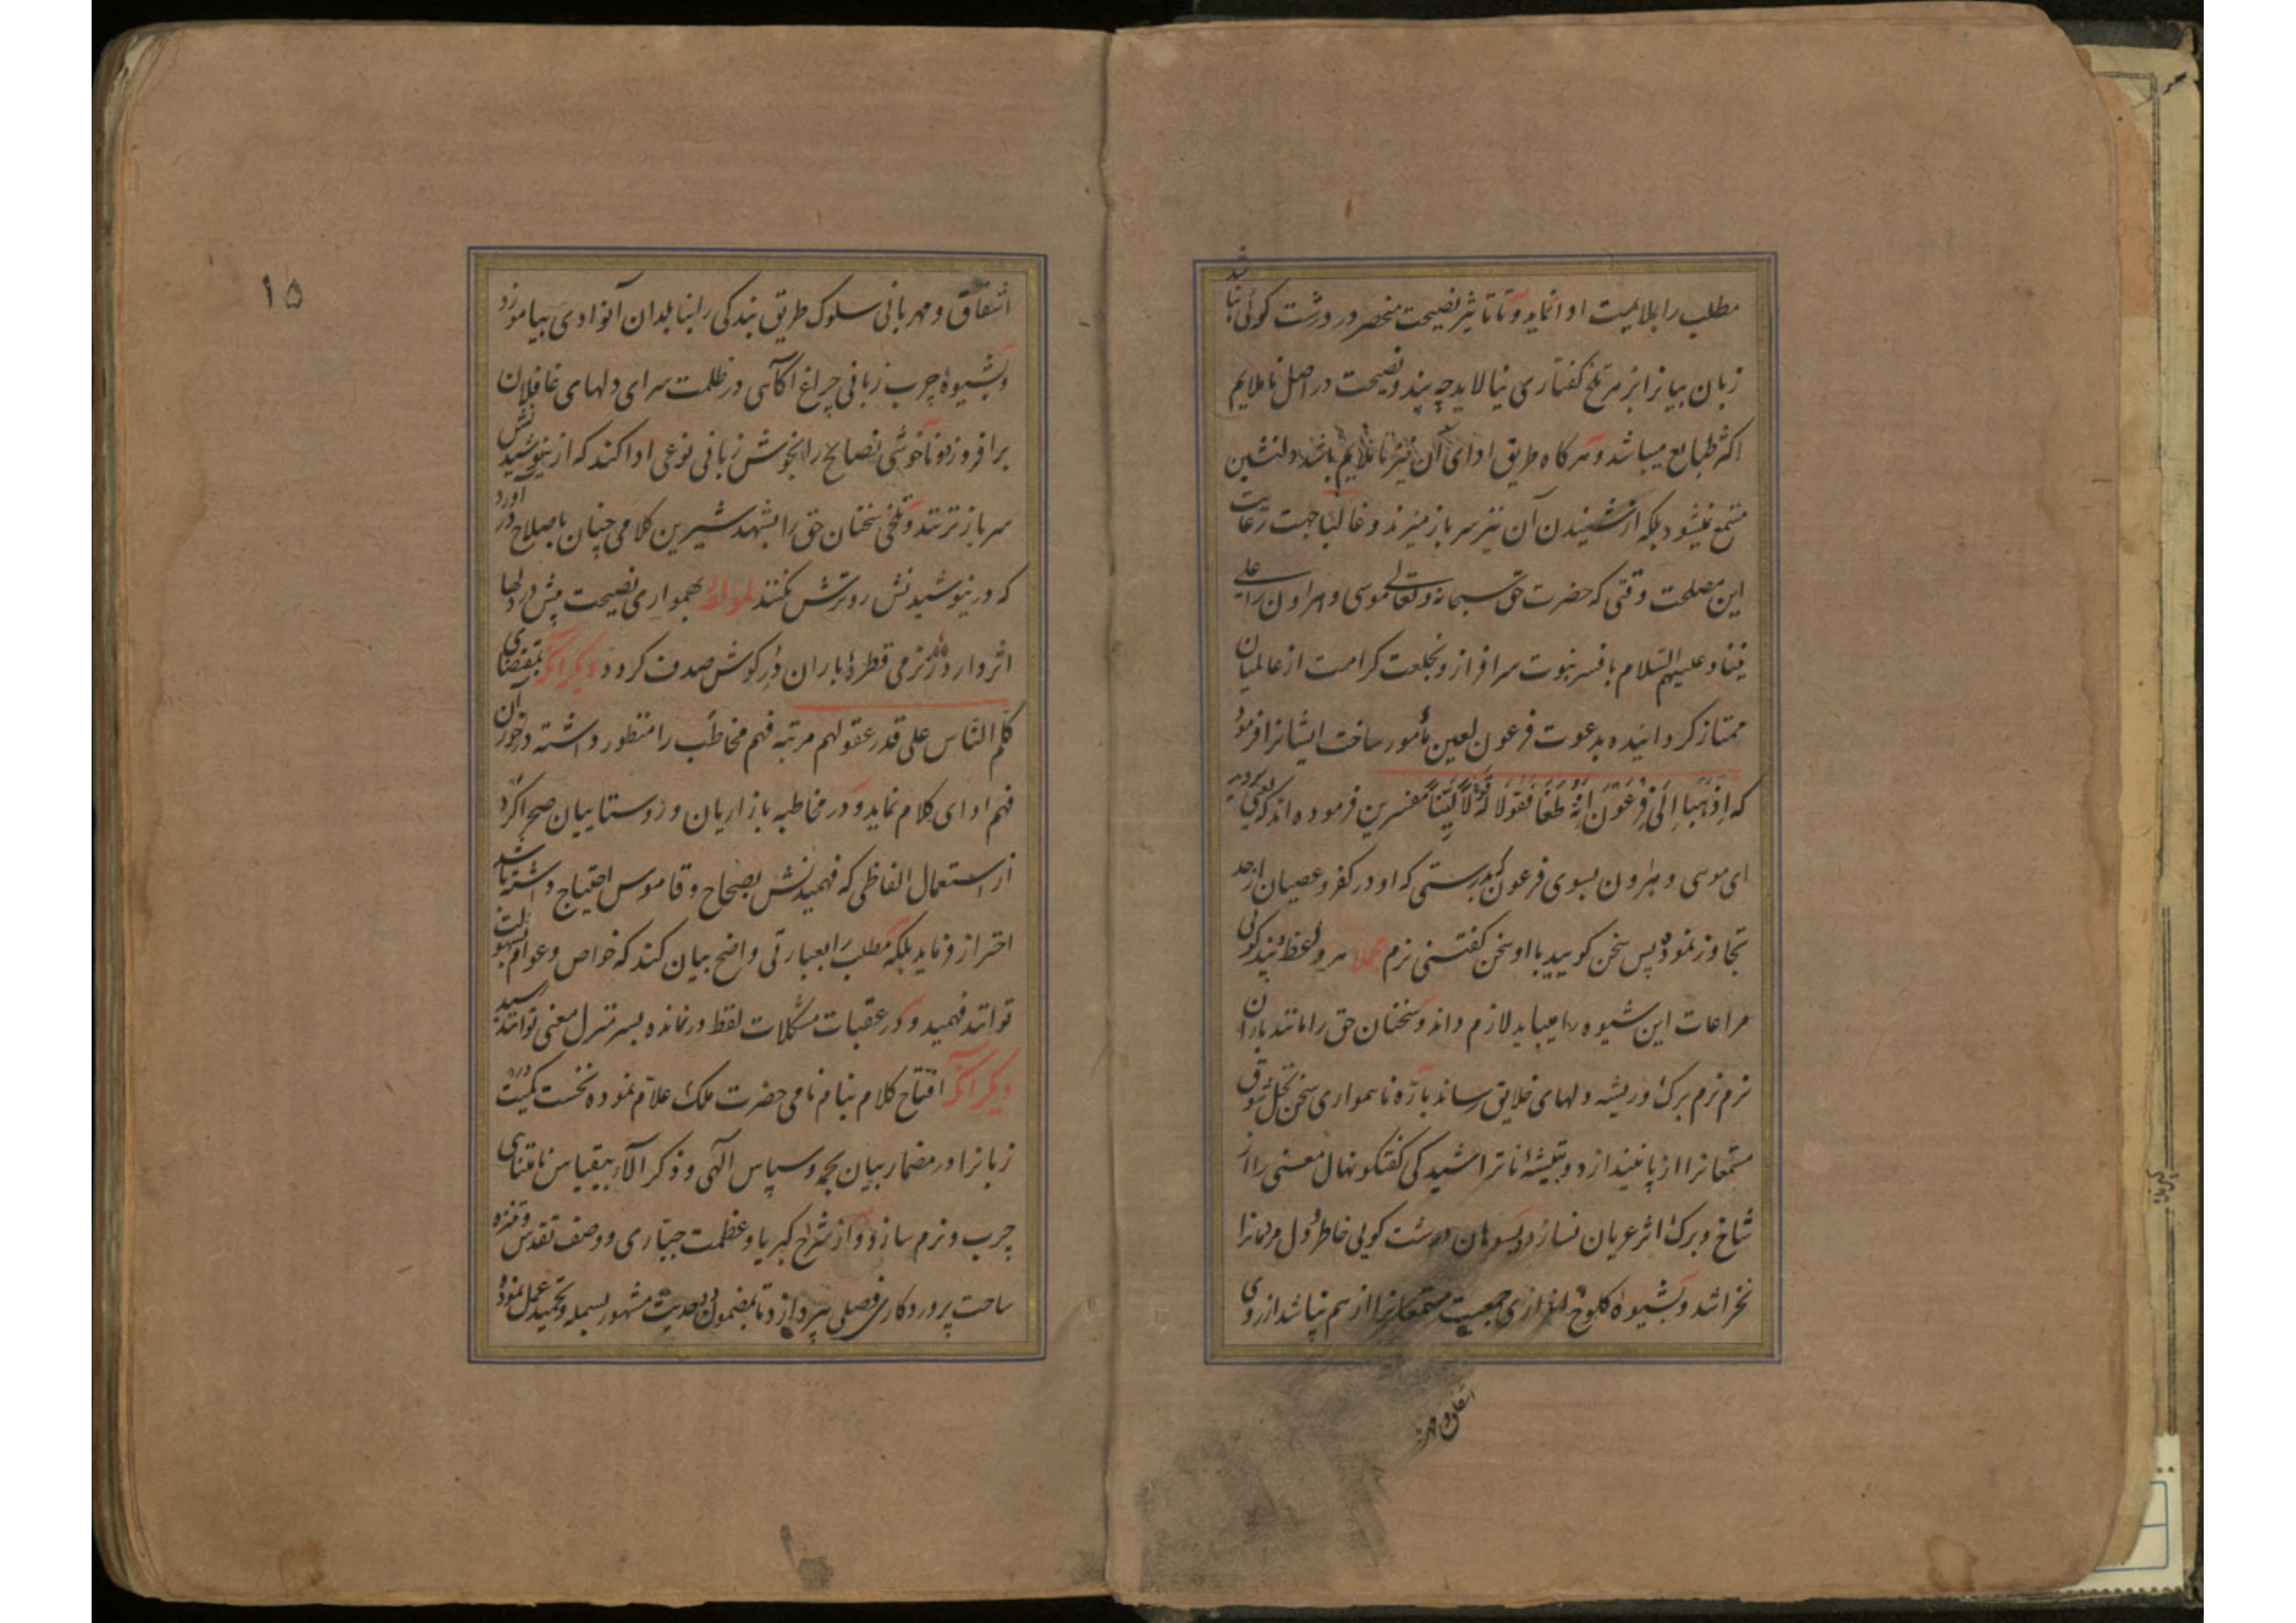 مطلب را بملایمت ادا نماید و تا تاثیر نصیحت منحصر در درشت گوئی نباشد
زبان بیانرا بزهر تلخ گفتاری نیالاید چه پند و نصیحت در اصل ناملایم
اکثر طبایع میباشد و هرگاه طریق ادای آن نیز ناملایم باشد دلنشین
مستمع نمیشود بلکه از شنیدن آن نیز سر باز میزند و غالبا جهت رعایت
این مصلحت وقتی که حضرت حق سبحانه و تعالی موسی و هراون را علی
نبینا و علیهم السلام بافسر نبوت سرافراز و بخلعت کرامت از عالمیان
ممتاز کردانیده بدعوت فرعون لعین مأمور ساخت ایشانرا فرمود
که اِذْهَبَا اِلَی فِرْعَوْنَ اِنَّهُ طَغَا فَقُولَا لَهُ قَوْلًا لَیِّنًا مفسرین فرموده اند که بروید
ای موسی و هرون بسوی فرعون بدرستی که او در کفر و عصیان از حد
تجاوز نموده پس سخن کویید با او سخن کفتنی نرم مجملا در وعظ و پند کوئی
مراعات این شیوه را میباید لازم داند و سخنان حق را مانند باران
نرم نرم برک و ریشه دلهای خلایق رساند باره ناهمواری سخن نخل شوق
مستمعانرا از پا نیندازد و بتیشهٔ ناتراشیدکی کفتکو نهال معنی را از
شاخ و برک اثر عریان نسازد و بسوهان درشت کویی خاطر و دل مردمانرا
نخراشد و بشیوهٔ کلوخ اندازی جمعیت مستمعانرا از هم نپاشد از روی
اشفاق و مهر
۱۵
اشفاق و مهربانی سلوک طریق بندکی را بنابلدان آنوادی بیاموزد
و بشیوهٔ چرب زبانی چراغ آکاهی در ظلمت سرای دلهای غافلان
برافروزد و ناخوشی نصایح را بخوش زبانی نوعی ادا کند که از نیوشیدنش
سر باز نزنند و تلخی سخنان حق را بشهد شیرین کلامی چنان باصلاح درآورد
که در نیوشیدنش رو ترش نکنند لمولفه بهمواری نصیحت بیش در دلها
اثر دارد ز نرمی قطرهٔ باران دُر کوش صدف کردد دیکر آنکه بمقتضای
کلم الناس علی قدر عقولهم مرتبه فهم مخاطَب را منظور داشته درخور آن
فهم ادای کلام نماید و در مخاطبه بازاریان و روستاییان صحراکرد
از استعمال الفاظی که فهمیدنش بصحاح و قاموس احتیاج داشته باشد
احتراز فرماید بلکه مطلب را بعبارتی واضح بیان کند که خواص و عوام بسهولت
توانند فهمید و در عقبات مشکلات لفظ درنمانده بسرمنزل معنی توانند رسید
دیکر آنکه افتتاح کلام بنام نامی حضرت ملک علّام نموده نخست کمیت
زبانرا در مضمار بیان بحمد و سپاس الهی و ذکر آلاء بیقیاس نامتناهی
چرب و نرم سازد و از شرح کبریا و عظمت جبّاری و وصف تقدس و تنزه
ساحت پروردکاری فصلی پردازد و تا بمضمون حدیث مشهور بسمله و تحمید عمل نموده